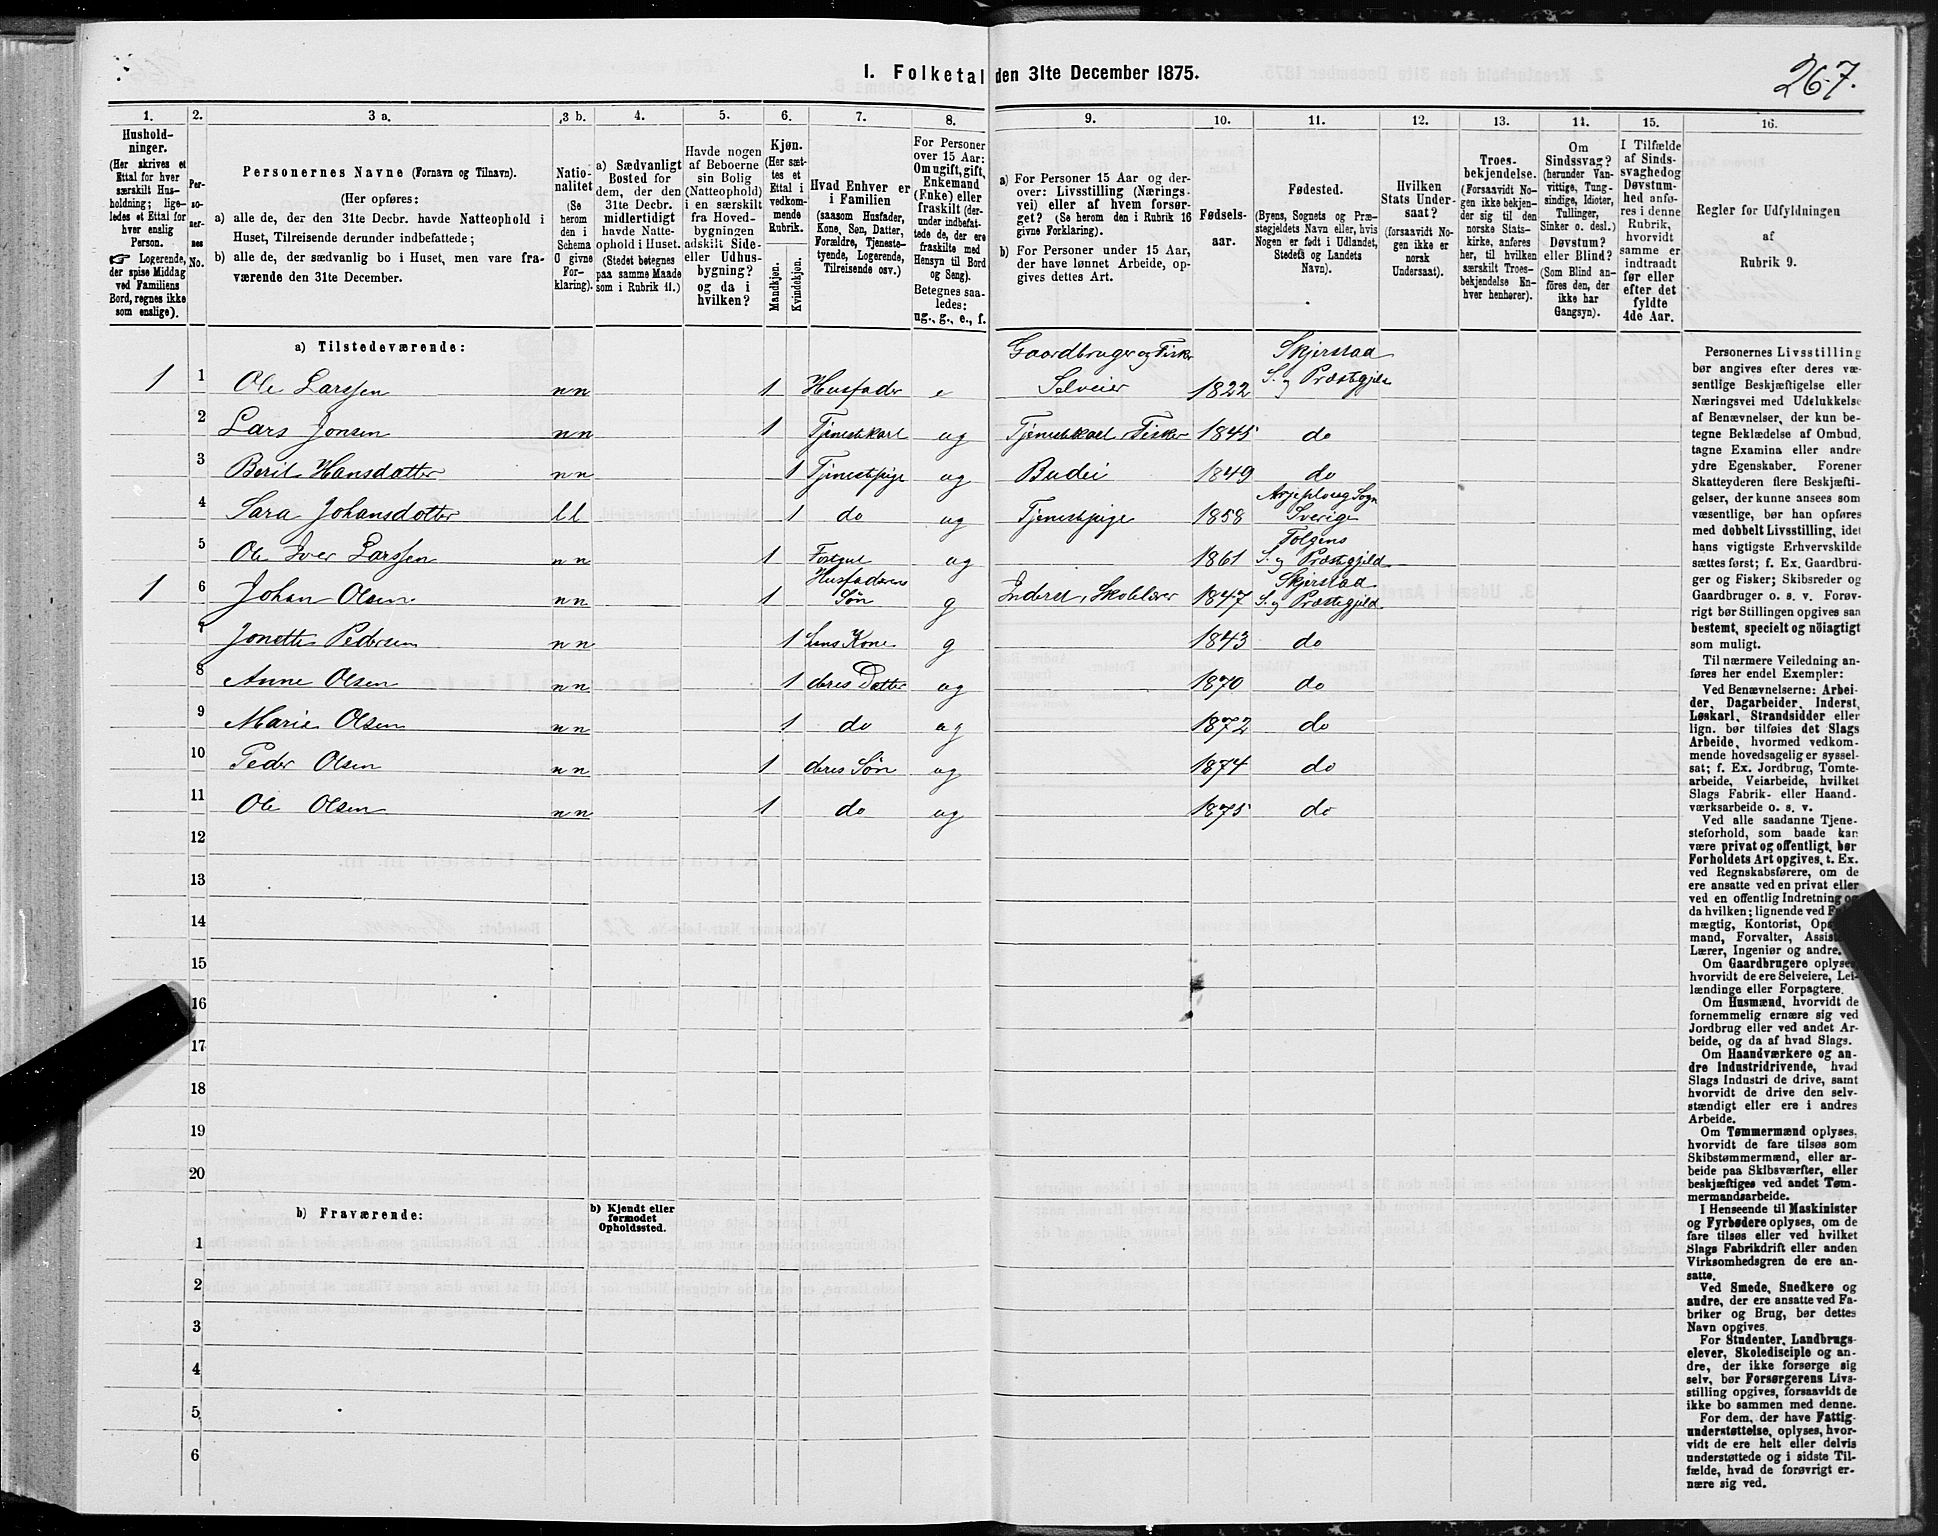 I. Folketal den 31te December 1875.
267.
1.
2.
3 a.
3 b.
4.
5.
6.
7.
8.
9.
10.
11.
12.
13.
14.
15.
16.
Hushold-
ninger.
(Her skrives et
Ettal for hver
særskilt Hus-
holdning; lige-
ledes et Ettal for
hver enslig
Person.
☞ Logerende,
der spise Middag
ved Familiens
Bord, regnes ikke
som enslige).
Per-
so-
ner-
nes
No.
Personernes Navne (Fornavn og Tilnavn).
(Her opføres:
a) alle de, der den 31te Decbr. havde Natteophold i
Huset, Tilreisende derunder indbefattede;
b) alle de, der sædvanlig bo i Huset, men vare fra-
værende den 31te December.
Natio-
nalitet
(Se
herom
den i
Schema
O givne
For-
klaring).
a) Sædvanligt
Bosted for
dem, der den
31te Decbr.
midlertidigt
havde Natte-
ophold i Huset.
(Stedet betegnes
paa samme Maade
som i Rubrik 11.)
Havde nogen
af Beboerne
sin Bolig
(Natteophold)
i en særskilt
fra Hoved-
bygningen
adskilt Side-
eller Udhus-
bygning?
og da i
hvilken?
Kjøn.
(Her sæt-
tes et
Ettal i
vedkom-
mende
Rubrik.
Mandkjøn.
Kvindekjøn.
Hvad Enhver er
i Familien
(saasom Husfader,
Kone, Søn, Datter,
Forældre, Tjeneste-
tyende, Logerende,
Tilreisende osv.)
For Personer
over 15 Aar:
Om ugift, gift,
Enkemand
(Enke) eller
fraskilt (der-
under indbefat-
tede de, der ere
fraskilte med
Hensyn til Bord
og Seng).
Betegnes saa-
ledes:
ug., g., e., f.
a) For Personer 15 Aar og der-
over: Livsstilling (Nærings-
vei) eller af hvem forsør-
get? (Se herom den i Rubrik 16
givne Forklaring).
b) For Personer under 15 Aar,
der have lønnet Arbeide, op-
gives dettes Art.
Fødsels-
aar.
Fødested.
(Byens, Sognets og Præ-
stegjeldets Navn eller, hvis
Nogen er født i Udlandet,
Stedets og Landets
Navn).
Hvilken
Stats Under-
saat?
(forsaavidt No-
gen ikke er
norsk
Undersaat).
Troes-
bekjendelse.
(Forsaavidt No-
gen ikke bekjen-
der sig til den
norske Stats-
kirke, anføres
her, til hvilken
særskilt Troes-
bekjendelse En-
hver henhører).
Om
Sindssvag?
(herunder Van-
vittige, Tung-
sindige, Idioter,
Tullinger,
Sinker o. desl.)
Døvstum?
eller Blind?
(Som Blind an-
føres den, der
ikke har
Gangsyn).
I Tilfælde
af Sinds-
svaghed og
Døvstum-
hed anfø-
res i denne
Rubrik,
hvorvidt
samme er
indtraadt
før eller
efter det
fyldte
4de Aar.
Regler for Udfyldningen
af
Rubrik 9.
a) Tilstedeværende:
Gaardbruger og Fisker Skjerstad
1 1 Ole Larssen nn 1 Husfader e Selveier 1822 S. og Præstegjeld
2 Lars Jonsen nn 1 Tjenestkarl ug Tjenestkarl, Fisker 1845 do
3 Berit Hansdatter nn 1 Tjenestpige ug Budei 1849 do
Arjeploug Sogn
4 Sara Johansdotter ll 1 do ug Tjenestpige 1858 Sverige
Tolgens
5 Ole Iver Larssen nn 1 ug 1861 S. og Præstegjeld
Husfaderens Skjerstad
1 6 Johan Olsen nn 1 Søn g Inderst, Skolelærer 1847 S. og Præstegjeld
7 Jonette Pedersen nn 1 hans Kone g 1843 do
8 Anne Olsen nn 1 deres Datter ug 1870 do
9 Marie Olsen nn 1 do ug 1872 do
10 Peder Olsen nn 1 deres Søn ug 1874 do
11 Ole Olsen nn 1 do ug 1875 do
12
13
14
15
16
17
18
19
20
b) Fraværende:
b) Kjendt eller
formodet
Opholdssted.
1
2
3
4
5
6
Personernes Livsstilling
bør angives efter deres væ-
sentlige Beskjæftigelse eller
Næringsvei med Udelukkelse
af Benævnelser, der kun be-
tegne Beklædelse af Ombud,
tagne Examina eller andre
ydre Egenskaber. Forener
Skatteyderen flere Beskjæfti-
gelser, der kunne ansees som
væsentlige, bør han opføres
med dobbelt Livsstilling, idet
hans vigtigste Erhvervskilde
sættes først; f. Ex. Gaardbru-
ger og Fisker; Skibsreder og
Gaardbruger o. s. v. Forøv-
rigt bør Stillingen opgives saa
bestemt, specielt og nöiagtigt
som muligt.
Til nærmere Veiledning an-
føres her endel Exempler:
Ved Benævnelserne: Arbei-
der, Dagarbeider, Inderst,
Løskarl, Strandsidder eller
lign. bør tilføies det Slags
Arbeide, hvormed vedkom-
mende hovedsagelig er syssel-
sat; f. Ex. Jordbrug, Tomte-
arbeide, Veiarbeide, hvilket
Slags Fabrik- eller Haand-
værksarbeide o. s. v.
Ved alle saadanne Tjene-
steforhold, som baade kan
være privat og offentligt, bør
Forholdets Art opgives, t. Ex.
ved Regnskabsførere, om de
ere ansatte ved en privat eller
ved en offentlig Indretning og
da hvilken; lignende ved
mægtig, Kontorist,
mand, Forvalter,
Lærer, Ingeniør og andre.
Om Gaardbrugere oplyses,
hvorvidt de ere Selveiere, Lei-
lændinge eller Forpagtere.
Om Husmænd, hvorvidt de
fornemmelig ernære sig ved
Jordbrug eller ved andet Ar-
beide, og da af hvad Slags.
Om Haandværkere og an-
dre Industridrivende, hvad
Slags Industri de drive, samt
hvorvidt de drive den selv-
stændigt eller ere i andres
Arbeide.
Om Tømmermænd oplyses,
hvorvidt de fare tilsøs som
Skibstømmermænd, eller ar-
beide paa Skibsværfter, eller
beskjæftiges ved andet Tøm-
mermandsarbeide.
I Henseende til Maskinister
og Fyrbødere oplyses, om de
fare tilsøs eller ved hvilket
Slags Fabrikdrift eller anden
Virksomhedsgren de ere an-
satte.
Ved Smede, Snedkere og
andre, der ere ansatte ved Fa-
briker og Brug, bør dettes
Navn opgives.
For Studenter, Landbrugs-
elever, Skoledisciple og an-
dre, der ikke forsørge sig
selv, bør Forsørgerens Livs-
stilling opgives, forsaavidt de
ikke bo sammen med denne.
For dem, der have Fattig-
understøttelse, oplyses, hvor-
vidt de ere helt eller delvis
understøttede og i sidste Til-
fælde, hvad de forøvrigt er-
nære sig ved.